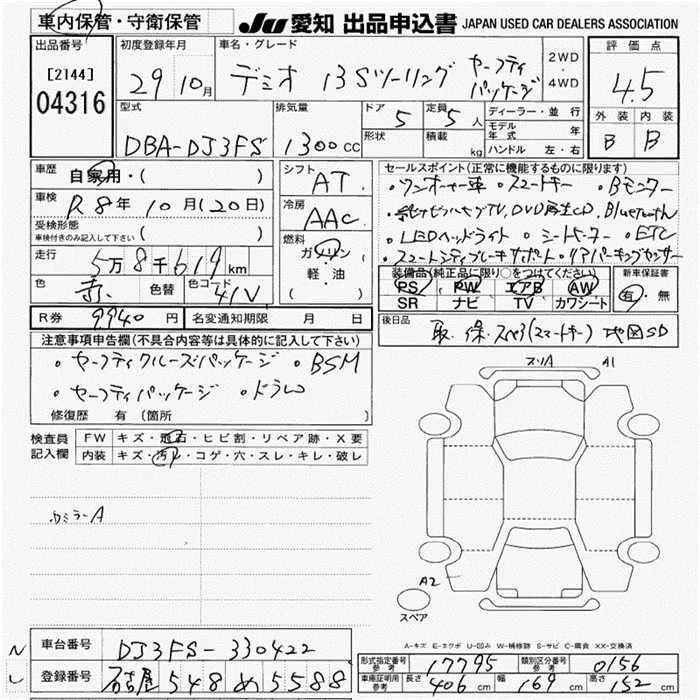 車内保管・守衛保管
JU 愛知 出品申込書 JAPAN USED CAR DEALERS ASSOCIATION
出品番号
[2144]
04316
初度登録年月
29 10月
車名・グレード
デミオ 13Sツーリング セーフティパッケージ
2WD
・
4WD
評価点
4.5
外装 内装
B B
型式
DBA-DJ3FS
排気量
1300cc
ドア 5
定員 5人
形状
積載 kg
ディーラー・並行
モデル年式 年
ハンドル 左・右
車歴
自家用・( )
車検
R8年10月(20日)
受検形態
車検付きのみ記入して下さい ( )
走行
5万8千619km
色 赤
色替
色コード 41V
シフト
AT
冷房
AAC
燃料
ガソリン
軽・油
( )
R券 9940円
名変通知期限 月 日
セールスポイント(正常に機能するものに限ります)
・ワンオーナー車 ・スマートキー ・Bモニター
TV,DVD再生CD,Bluetooth
・LEDヘッドライト ・シートヒーター ・ETC
・スマートシティブレーキサポート ・リアパーキングセンサー
装備品(純正品に限り○をつけてください)
PS PW エアB AW
SR ナビ TV カワシート
新車保証書
有・無
後日品
取・保・スペア(スマートキー) 地図SD
注意事項申告欄(不具合内容等は具体的に記入して下さい)
・セーフティクルーズパッケージ ・BSM
・セーフティパッケージ ・ドラレコ
修復歴 有 (箇所 )
検査員記入欄
FW キズ・飛石・ヒビ割・リペア跡・X要
内装 キズ・汚レ・コゲ・穴・スレ・キレ・破レ
ミラーA
スリA A1
A2
スペア
A-キズ E-エクボ U-凹み W-補修跡 S-サビ C-腐食 XX-交換済
車台番号 DJ3FS-330422
登録番号 名古屋 548 め 5588
型式指定番号 参考 17795
類別区分番号 参考 0156
車庫証明用 参考 長さ 406cm 幅 169cm 高さ 152cm